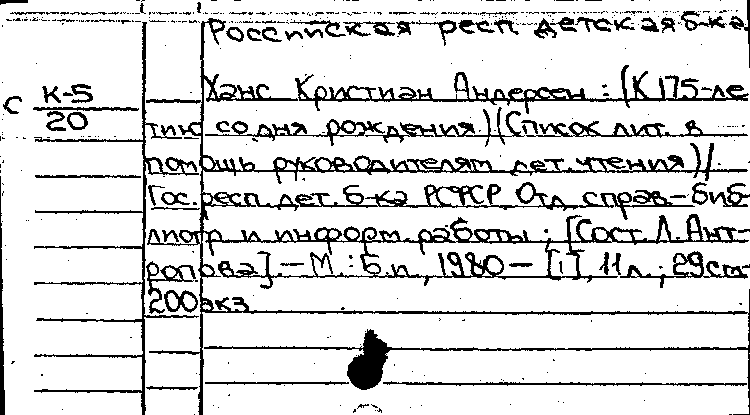 Российская респ. детская б-ка
С К-5
20
Ханс Кристиан Андерсен : (К 175-ле
тию со дня рождения) (Список лит. в
помощь руководителям дет. чтения) /
Гос. респ. дет. б-ка РСФСР. Отд. справ.-биб-
лиогр и информ. работы ; [Сост. Л. Ант-
ропова]. — М. : Б.и., 1980 — [1], 11 л. ; 29см
200 экз